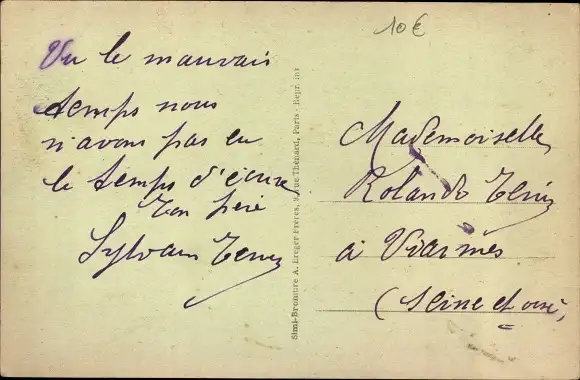 10€
Vu le mauvais
temps nous
n'avons pas eu
le temps d'écrire
Ton père
Sylvain
Simi-Bromure A. Breger Frères, 9, rue Thénard, Paris - Repr. int
Mademoiselle
Rolande
à Viarmes
(Seine et oise)